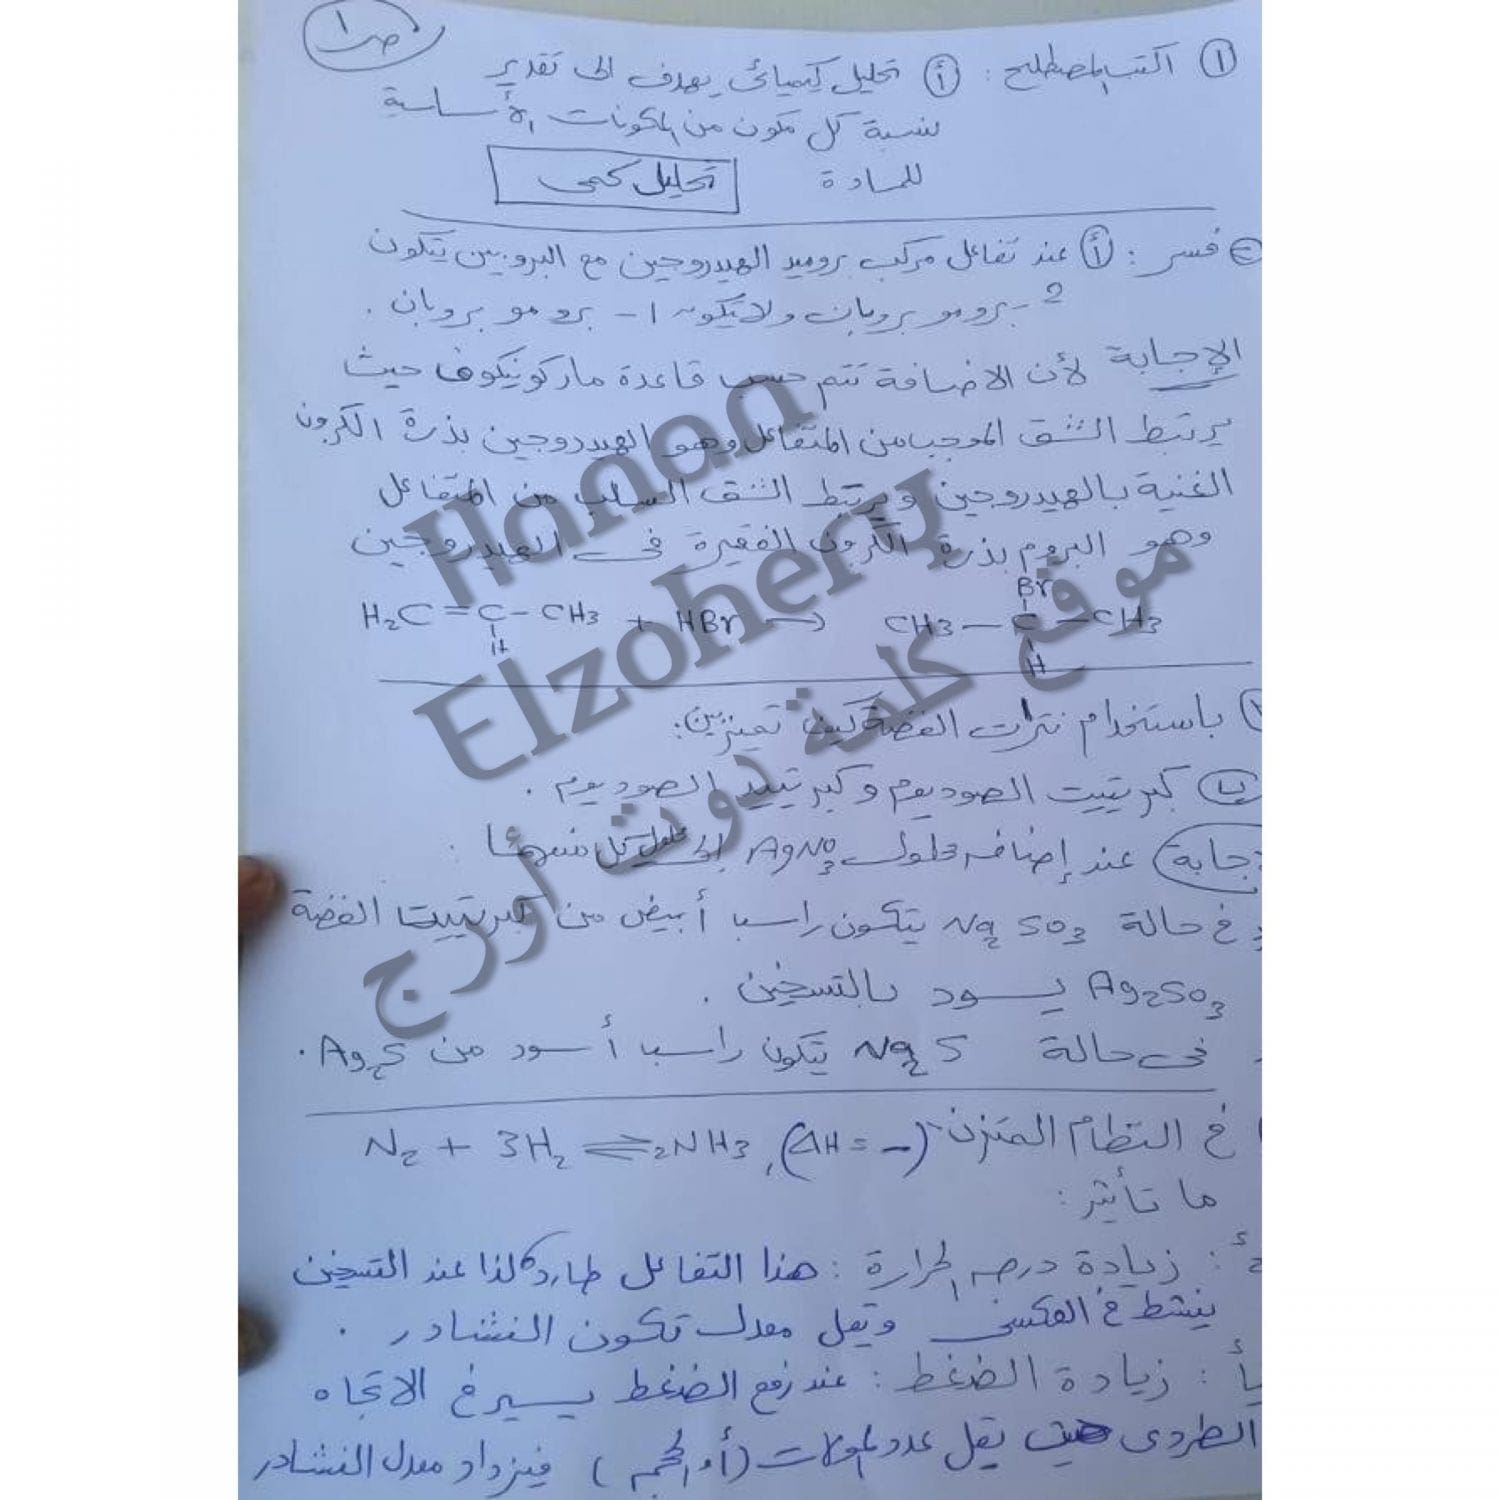 ص ١
① اكتب المصطلح : أ تحليل كيميائى يهدف الى تقدير
نسبة كل مكون من المكونات الأساسية
للمادة
تحليل كمى
فسر : أ عند تفاعل مركب بروميد الهيدروجين مع البروبين يتكون
2 - برومو بروبان ولا يتكون ١ - برومو بروبان .
الإجابة لأن الاضافة تتم حسب قاعدة ماركونيكوف حيث
يرتبط الشق الموجب من المتفاعل وهو الهيدروجين بذرة الكربون
الغنية بالهيدروجين ويرتبط الشق السالب من المتفاعل
وهو البروم بذرة الكربون الفقيرة فى الهيدروجين
Br
H₂C = C - CH3 + HBr → CH3 - C - CH3
H H
باستخدام نترات الفضة كيف تميز بين :
كبريتيت الصوديوم وكبريتيد الصوديوم .
جابة عند إضافة محلول AgNO3 إلى محلول كل منهما :
فى حالة Na2 SO3 يتكون راسب أبيض من كبريتيت الفضة
Ag2SO3 يسود بالتسخين .
فى حالة Na2 S يتكون راسب أسود من Ag2S .
فى النظام المتزن N2 + 3H2 ⇌ 2NH3 , (ΔH = -)
ما تأثير :
زيادة درجه الحرارة : هذا التفاعل طارد لذا عند التسخين
ينشط فى العكسى وتقل معدل تكون النشادر .
زيادة الضغط : عند رفع الضغط يسير فى الاتجاه
الطردى حيث يقل عدد المولات (أو الحجم) فيزداد معدل النشادر
Hanan
Elzohery
موقع كلمة دوت أورج